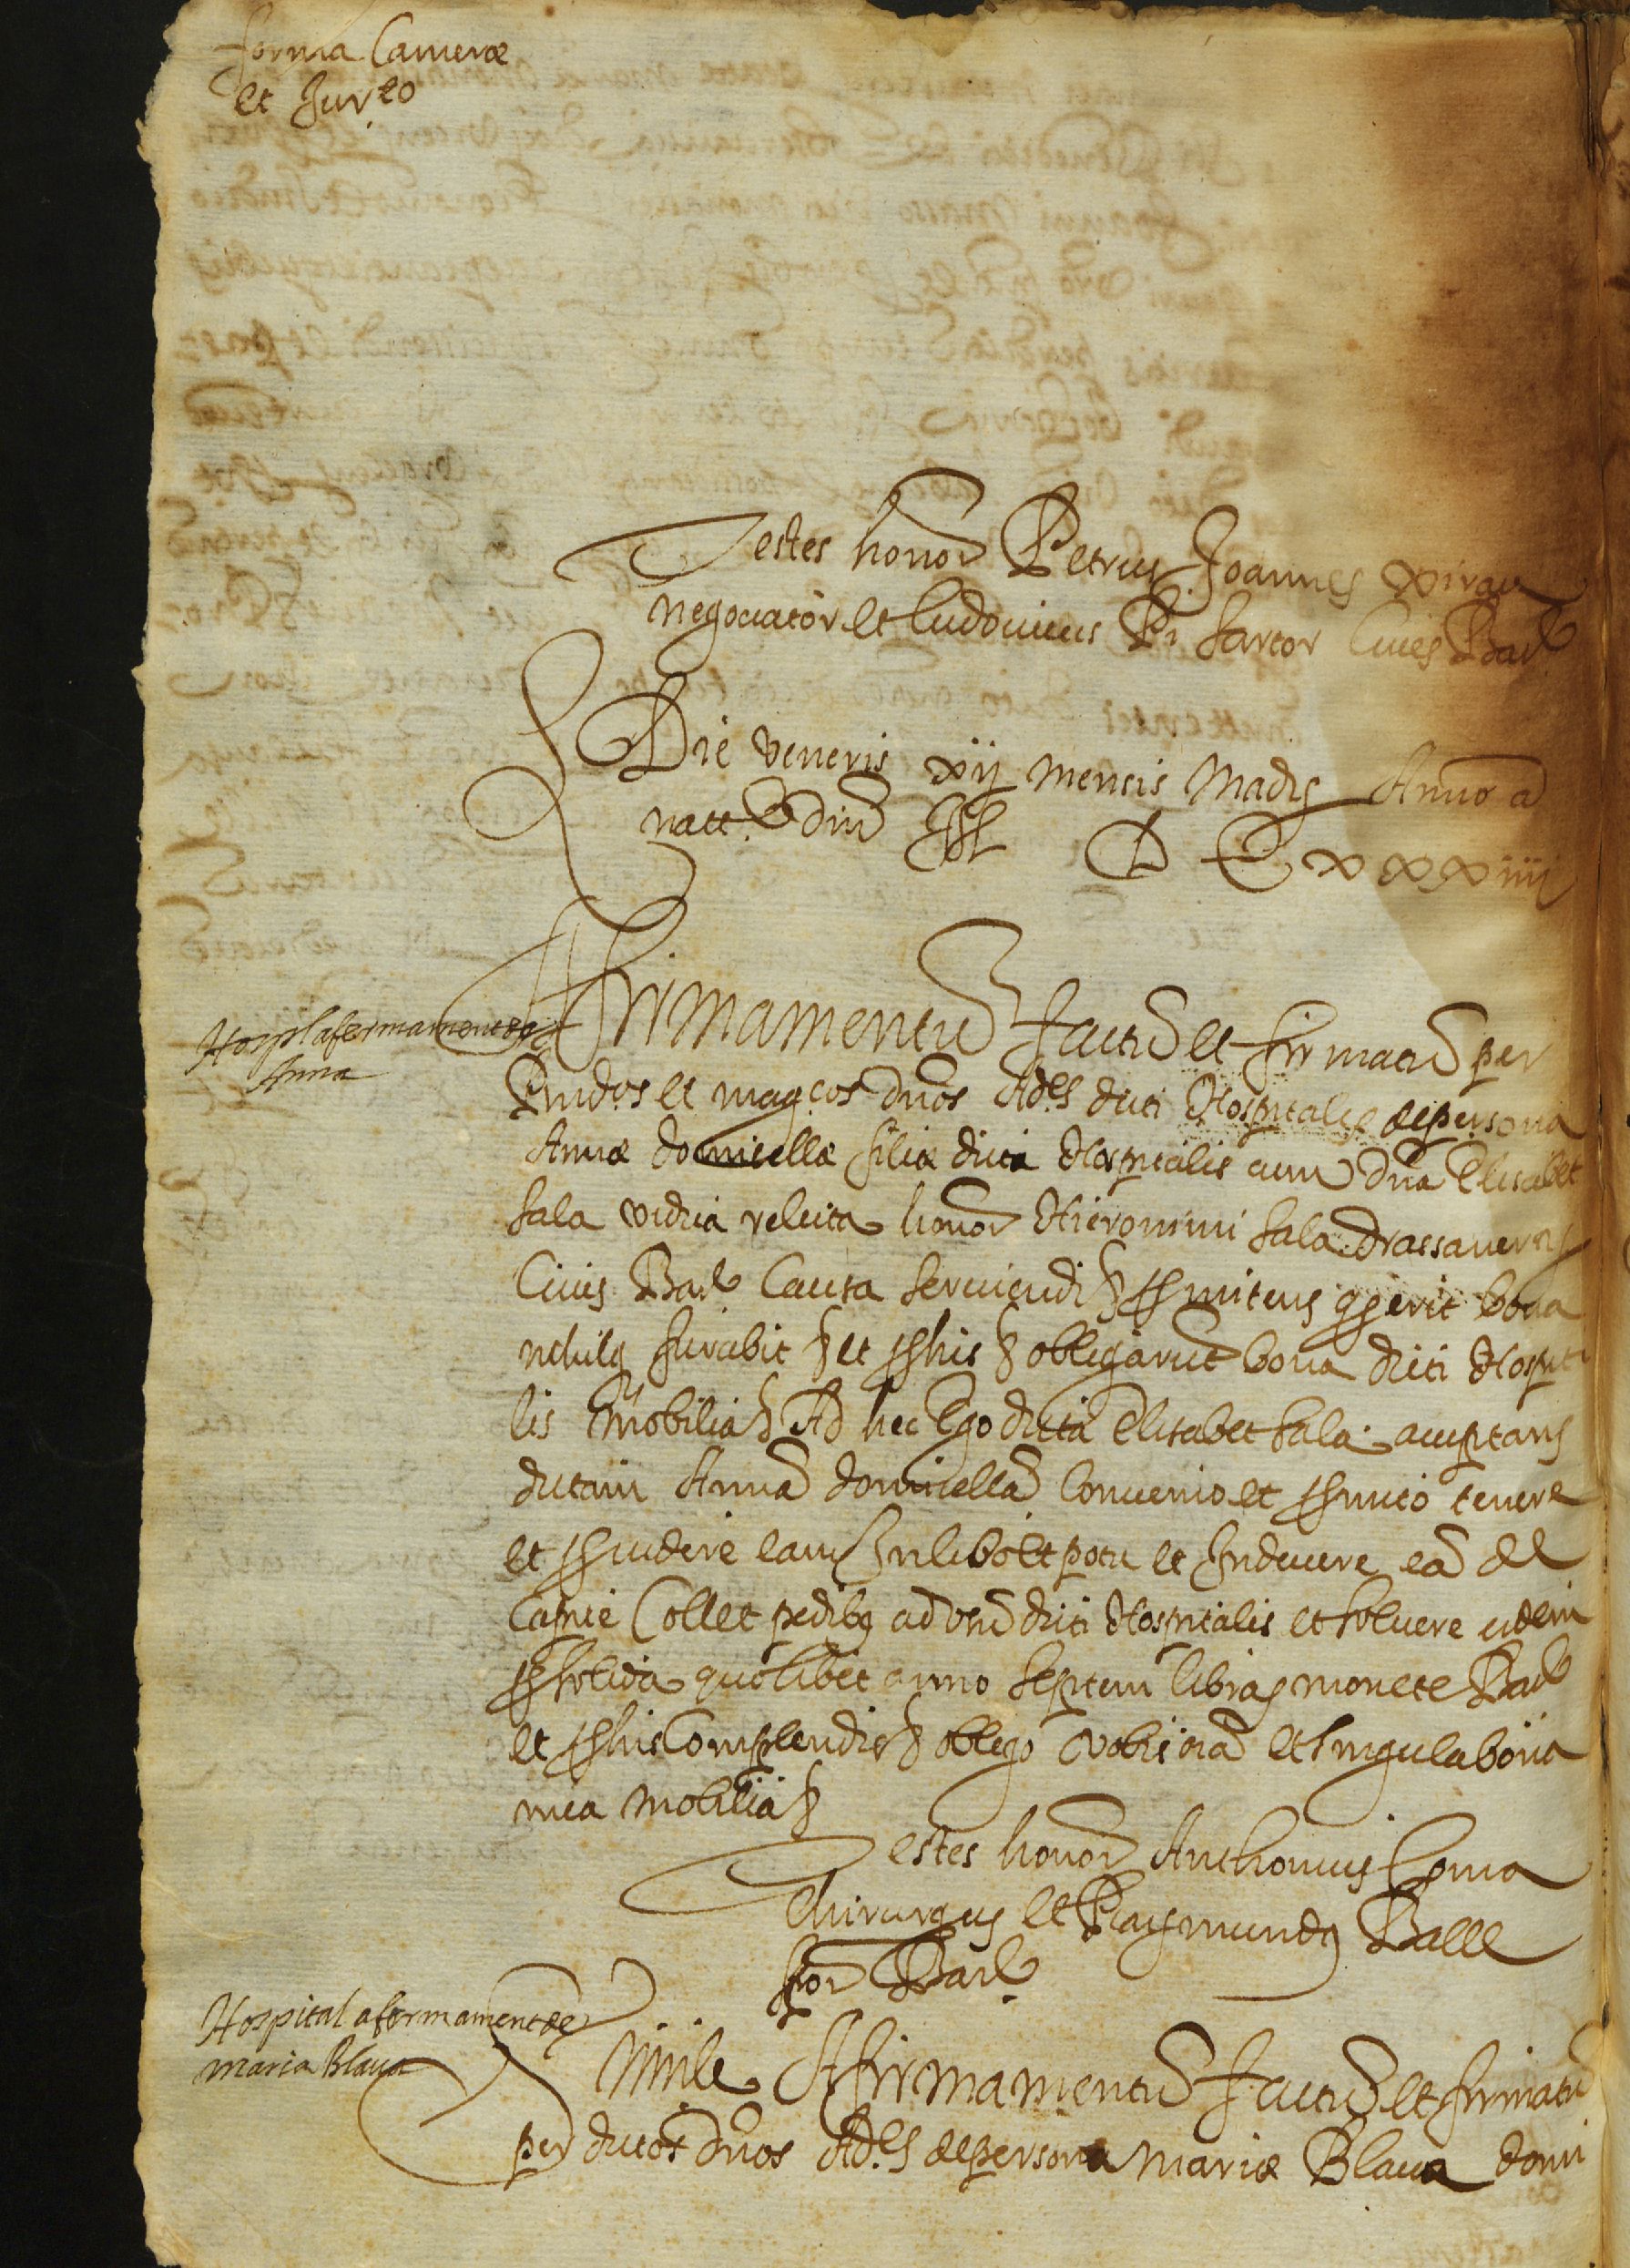 forma Camerae
et Jur.to
Testes honor Petrus Joannes xirau
negociator et Ludovicus Pi sartor Cives Barl
Die veneris xij mensis Madij Anno a
natt.e dni M D C xxxiiij
Hospl afermament de
Anna
Afirmamentu factu et firmatu per
Rndos et mag.cos dnos Ad.es dicti Hospitalis de persona
Annae domicellae filiae dicti Hospitalis cum dna Elisabet
Sala vidua relicta honor Hieronimi Sala drassaners
Civis Barl Causa serviendi
Jurabit et obligarut bona dicti Hospita
lis Mobilia Ad hec Ego dicta Elisabet Sala acceptans
dictam Anna domicella Convenio et promito tenere
et providere eam In cibo et potu et Induere ea de
Capite Collet pedibq ad usu dicti Hospitalis et solvere eidem
pro solida quolibet anno septem libras monete Barl
et pro his Complendis obligo vobis oia et singula bona
mea mobilia
Testes honor Anthonius Coma
Chirurgus et Raymundq Balle
Barl
Hospital afermament de
maria Blaua
Simile Afirmamentu factu et firmatu
per dictos dnos Ad.es de persona Mariae Blaua domi